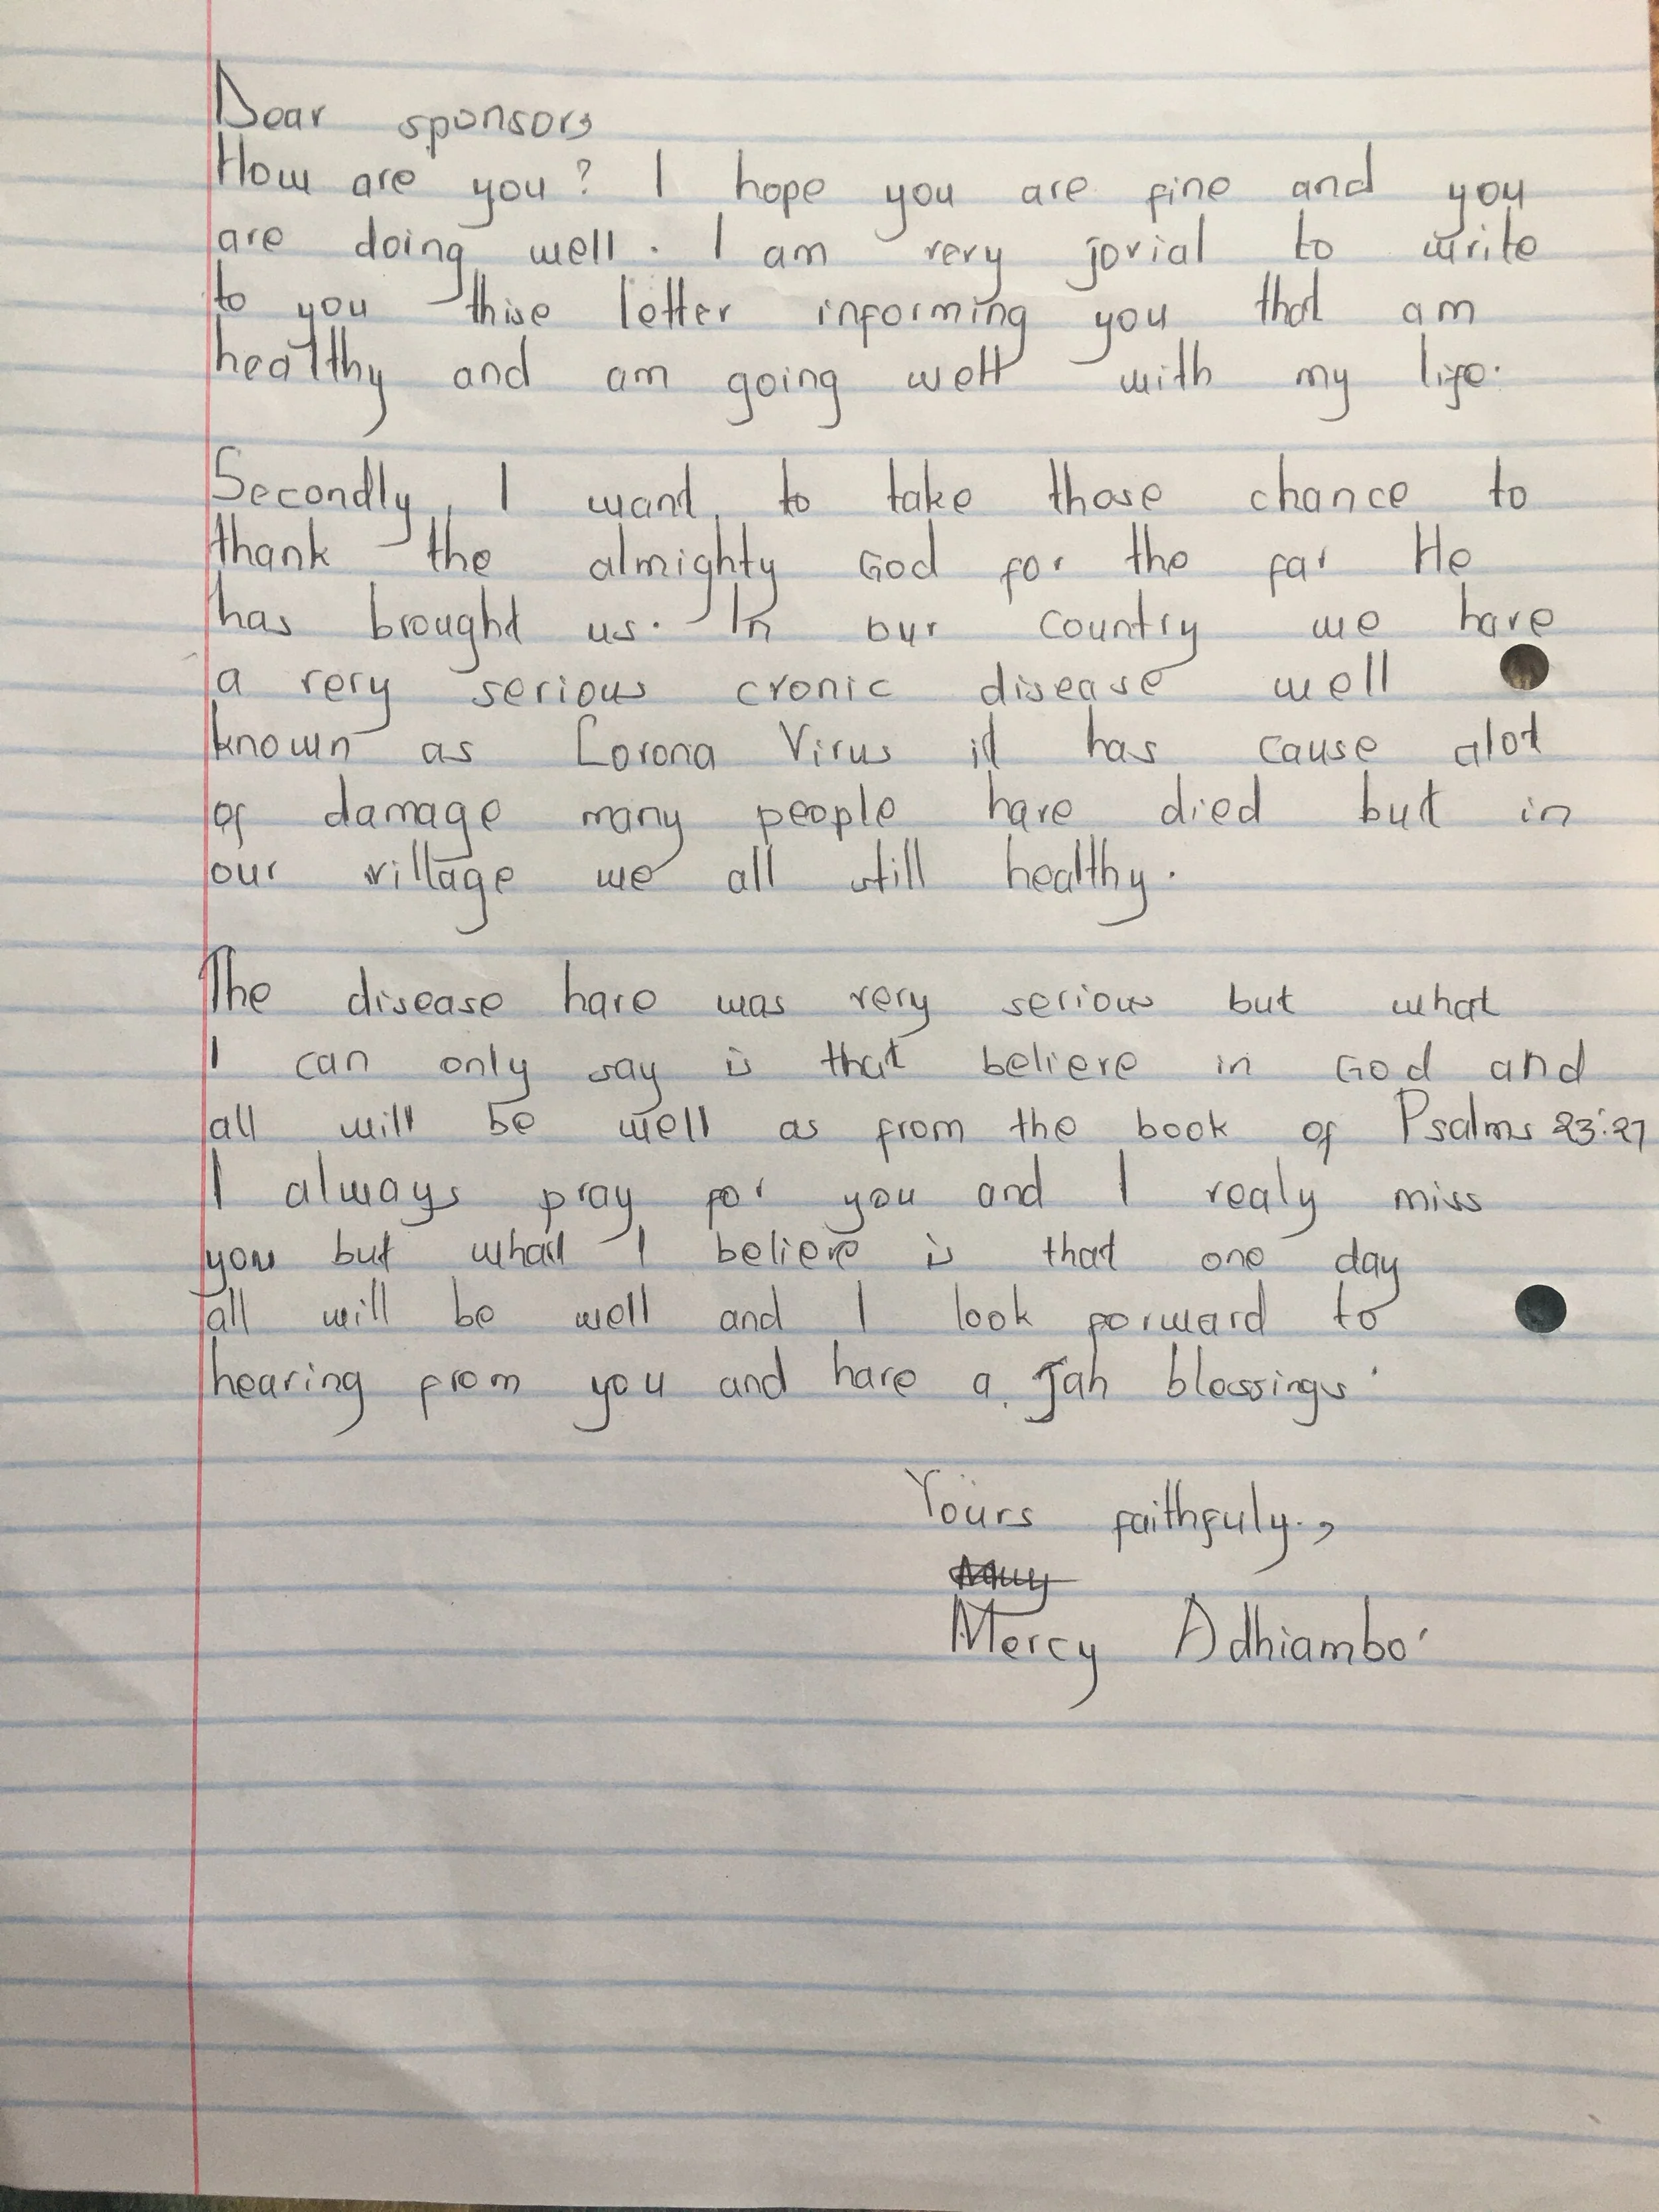 Dear sponsors
How are you? I hope you are fine and you
are doing well. I am very jovial to write
to you thise letter informing you that am
healthy and am going well with my life.
Secondly, I want to take those chance to
thank the almighty God for the far He
has brought us. In our country we have
a very serious cronic disease well
known as Corona Virus it has cause alot
of damage many people have died but in
our village we all still healthy.
The disease have was very serious but what
I can only say is that believe in God and
all will be well as from the book of Psalms 23:27
I always pray for you and I realy miss
you but what I believe is that one day
all will be well and I look forward to
hearing from you and have a Jah blessings.
Yours faithfuly.,
Mercy Adhiambo